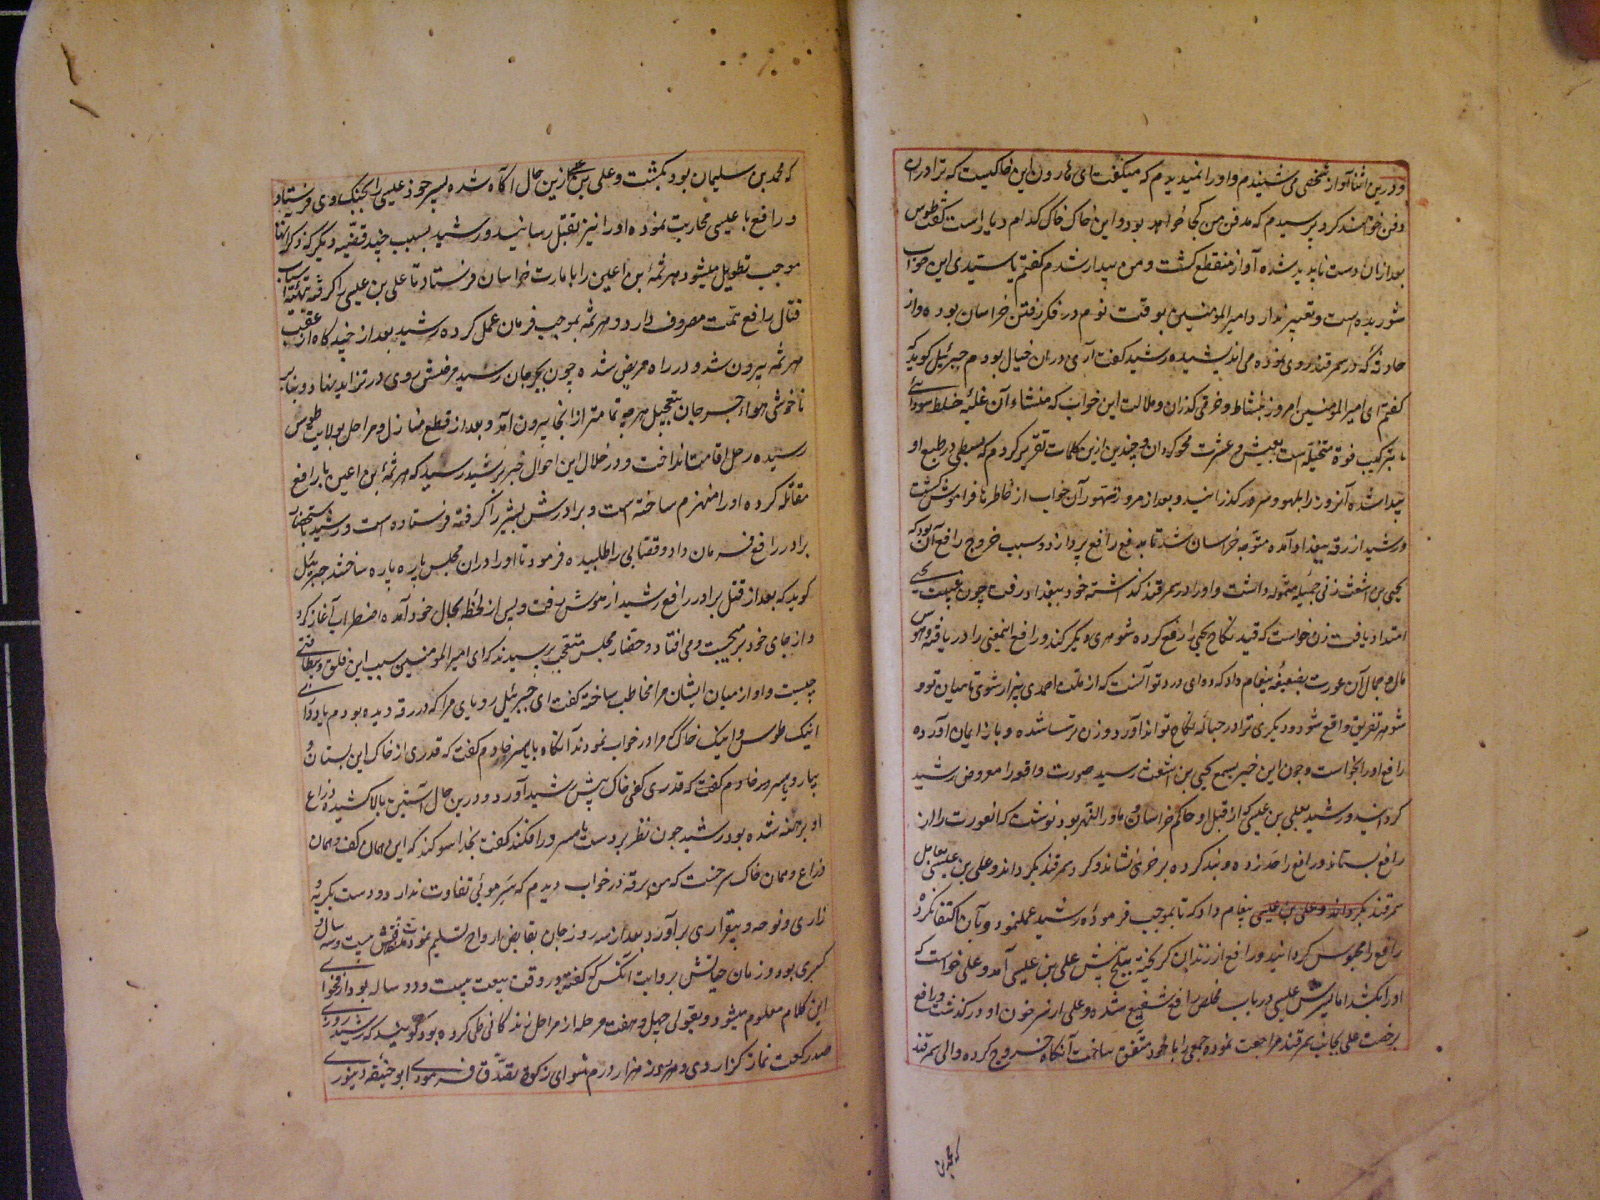 ودرین اثنا آواز شخصی می شنیدم و اورا نمیدیدم که میگفت ای هارون این خاکیست که ترا دران
دفن خواهند کرد پرسیدم که مدفن من کجا خواهد بود و این خاک خاک کدام دیار است گفت طوس
بعد ازان دست ناپدید شده آواز منقطع گشت و من بیدار شدم گفتم یا سیدی این خواب
شوریده است و تعبیر ندارد امیر المومنین بوقت نوم در فکر رفتن خراسان بوده و از
حادثه که در سمرقند روی نوده می اندیشیده رشید گفت آری دران خیال بودم جبرئیل گوید که
گفتم ای امیر المومنین امروز بنشاط و خرمی گذران و ملالت این خواب که منشاء آن غلبه خلط سوداست
بترکیب قوة متخیله است بعیش و عشرت محو گردان و چندین ازین کلمات تقریر کردم که بسطی در طبع او
پیدا شده آنروز را بلهو و سرور گذرانید و بعد از مرور شهور آن خواب از خاطرها فراموش گشت
ورشید از رقه ببغداد آمده متوجه خراسان شد تا بدفع رافع پردازد و سبب خروج رافع آن بود که
یحیی بن اشعث زنی جمیله متموله داشت و اورا در سمرقند گذاشته خود ببغداد رفت چون غیبت یحیی
امتداد یافت زن خواست که قید نکاح یحیی را رفع کرده شوهری دیگر کند و رافع اینمعنی را دریافته و هوس
مال و جمال آن عورت بضعیفه پیغام داد که دوای درد تو آنست که از ملت احمدی بیزار شوی تا میان تو و
شوهر تفریق واقع شود و دیگری ترا در حباله نکاح تواند آورد و زن ترسا شده و باز ایمان آورده
رافع اورا بخواست و چون این خبر بسمع یحیی بن اشعث رسید صورت واقعه را معروض رشید
گردانید و رشید بعلی بن عیسی که از قبل او حاکم خراسان و ماوراء النهر بود نوشت که آنعورت را از
رافع بستاند و رافع را حد زده و بند کرده بر خری نشاند و گرد سمرقند بگرداند و علی بن عیسی بعامل
سمرقند بگرداند و علی بن عیسی پیغام داد که تا بموجب فرموده رشید عملنمود و بآن اکتفا نکرده
رافع را محبوس گردانید و رافع از زندان گریخته ببلخ پیش علی بن عیسی آمد و علی خواست که
اورا بکشد اما پسرش عیسی در باب مخلص رافع شفیع شده و علی از سر خون او درگذشت و رافع
برخصت علی بجانب سمرقند مراجعت نموده جمعی را با خود متفق ساخت آنگاه خروج کرده والی سمرقند
که محمد بن
که محمد بن سلیمان بود بکشت و علی بن عیسی ازین حال آگاه شده پسر خود عیسی را بجنگ وی فرستاد
و رافع با عیسی محاربت نموده اورا نیز بقتل رسانید و رشید بسبب چند قضیه دیگر که ذکر آنها
موجب تطویل میشود هرثمة ابن اعین را بامارت خراسان فرستاد تا علی بن عیسی را گرفته بتهیه اسباب
قتال رافع همت مصروف دارد و هرثمه بموجب فرمان عمل کرده رشید بعد از چند گاه از عقب
هرثمه بیرون شد و در راه مریض شده چون بجرجان رسید مرضش روی در تزاید نهاد و بنابر
ناخوشی هواء جرجان بتعجیل هرچه تمامتر از انجا بیرون آمد و بعد از قطع منازل و مراحل بولایت طوس
رسیده رحل اقامت انداخت و در خلال این احوال خبر برشید رسید که هرثمة ابن اعین با رافع
مقاتله کرده اورا منهزم ساخته است و برادرش بشیر را گرفته فرستاده است و رشید باحضار
برادر رافع فرمان داد و قصابی را طلبیده فرمود تا اورا دران مجلس پاره پاره ساختند جبرئیل
گوید که بعد از قتل برادر رافع رشید از هوش رفت و پس از لحظه بحال خود آمده اضطراب آغاز کرد
و از جای خود بر میجست و می افتاد و حضار مجلس متعجب پرسیدند که ای امیر المومنین سبب این قلق و بیطاقتی
چیست و او از میان ایشان مرا مخاطب ساخته گفت ای جبرئیل رویای مرا که در رقه دیده بودم یاد داری
اینک طوس و اینک خاکی که مرا در خواب نمودند آنگاه با مسرور خادم گفت که قدری از خاک این بستان
بیار و مسرور خادم کفت که قدری کفی خاک پیش رشید آورد و درین حال آستین بالا کشیده ذراع
او برهنه شده بود رشید چون نظر بر دست مسرور افکند گفت بخدا سوگند که این همان کف و همان
ذراع و همان خاک سرخست که من برقه در خواب دیدم که سر موئی تفاوت ندارد و دست بگریه و
زاری و نوحه و بیقراری برآورد بعد از سه روز جان بقابض ارواح تسلیم نمود مدت خلافتش بیست و سه سال و
کسری بود و زمان حیاتش بروایت آنکس که گفته در وقت بیعت بیست و دو ساله بود از فحوای
این کلام معلوم میشود و بقولی چهل و هفت مرحله از مراحل زندگانی طی کرده بود گویند که رشید روزی
صد رکعت نماز گزاردی و هر روز هزار درم سوای زکوة بتصدق فرمودی ابو حنیفه دینوری